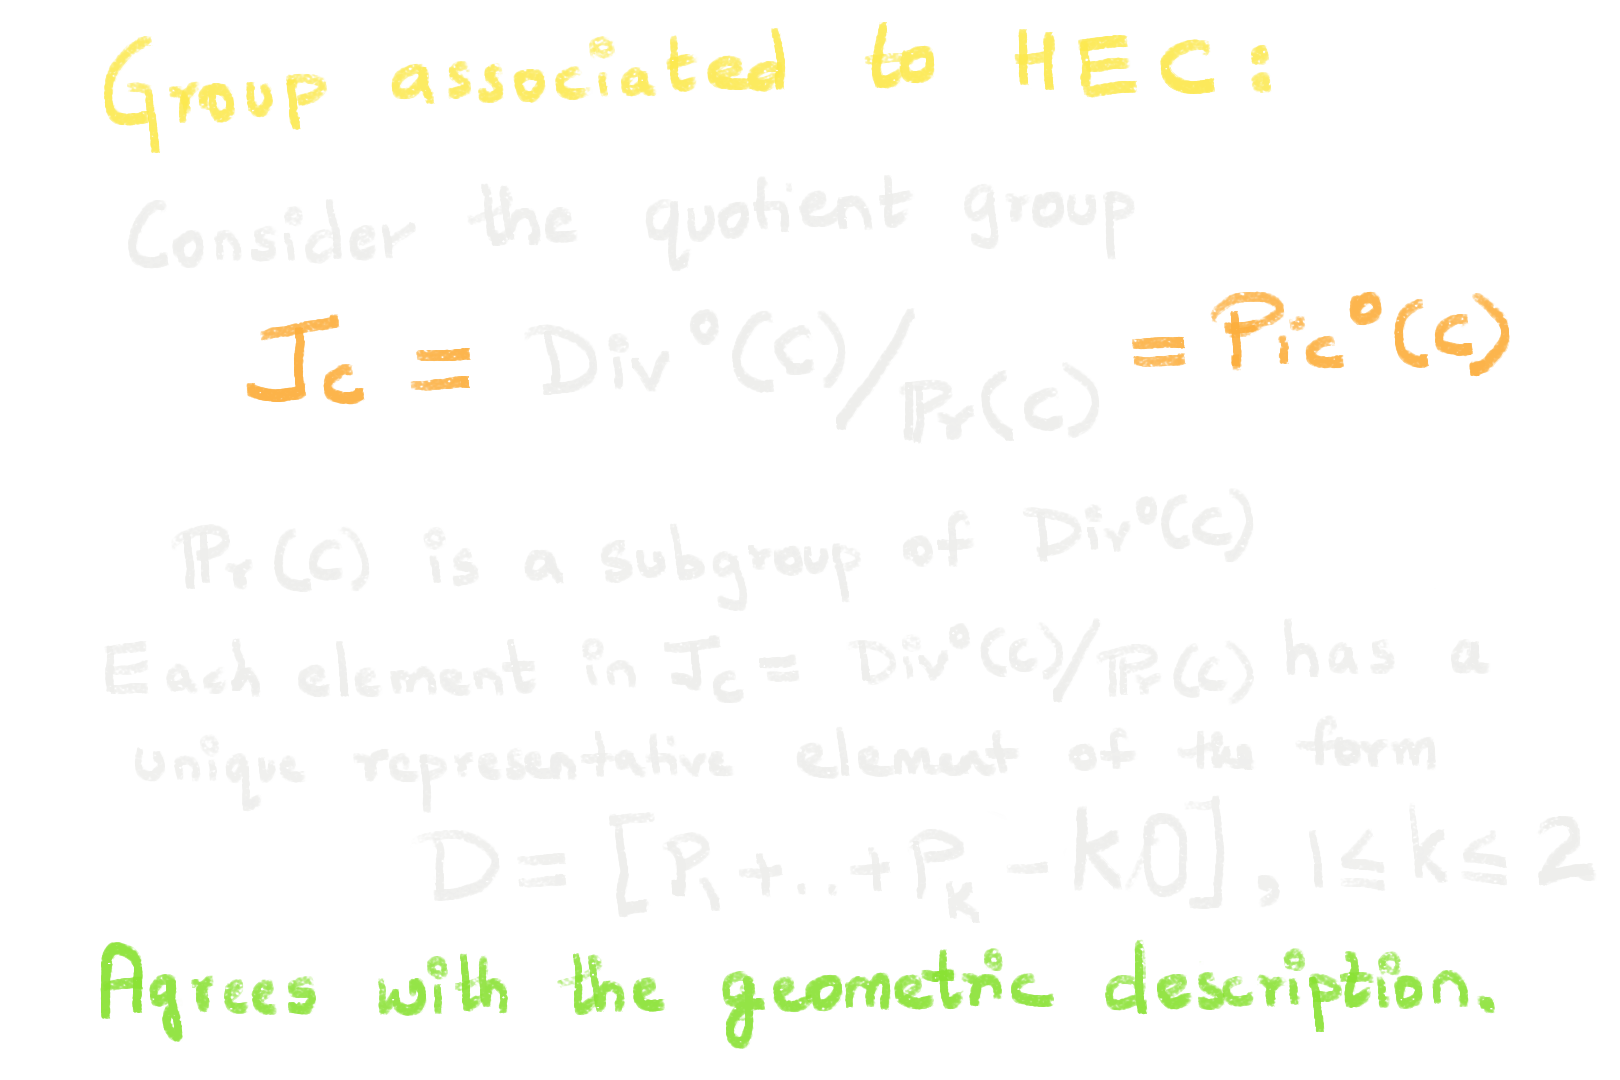 Group associated to HEC:
Consider the quotient group
J_C = Div⁰(C)/ℙr(C) = Pic⁰(C)
ℙr(C) is a subgroup of Div⁰(C)
Each element in J_C = Div⁰(C)/ℙr(C) has a
unique representative element of the form
D = [P₁+..+P_k - kO], 1≤k≤2
Agrees with the geometric description.